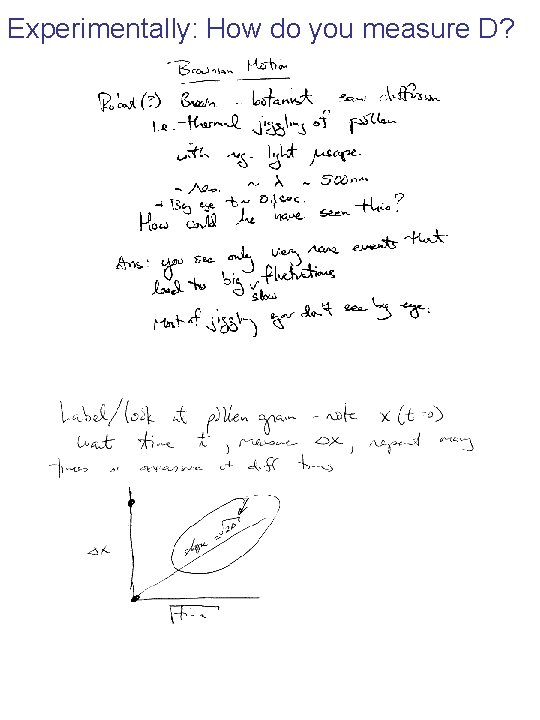 Experimentally: How do you measure D?
Brownian Motion
Robert(?) Brown - botanist saw diffusion
i.e. - thermal jiggling of pollen
with reg. light μscope.
- res. ~ λ ~ 500nm
- By eye t ~ 0.1sec.
How could he have seen this?
Ans: you see only very rare events that
lead to big fluctuations
slow
Most of jiggling you don't see by eye.
Label/look at pollen grain - note x(t=0)
wait time t, measure Δx, repeat many
times measure at diff times
slope = √2D
Δx
√time